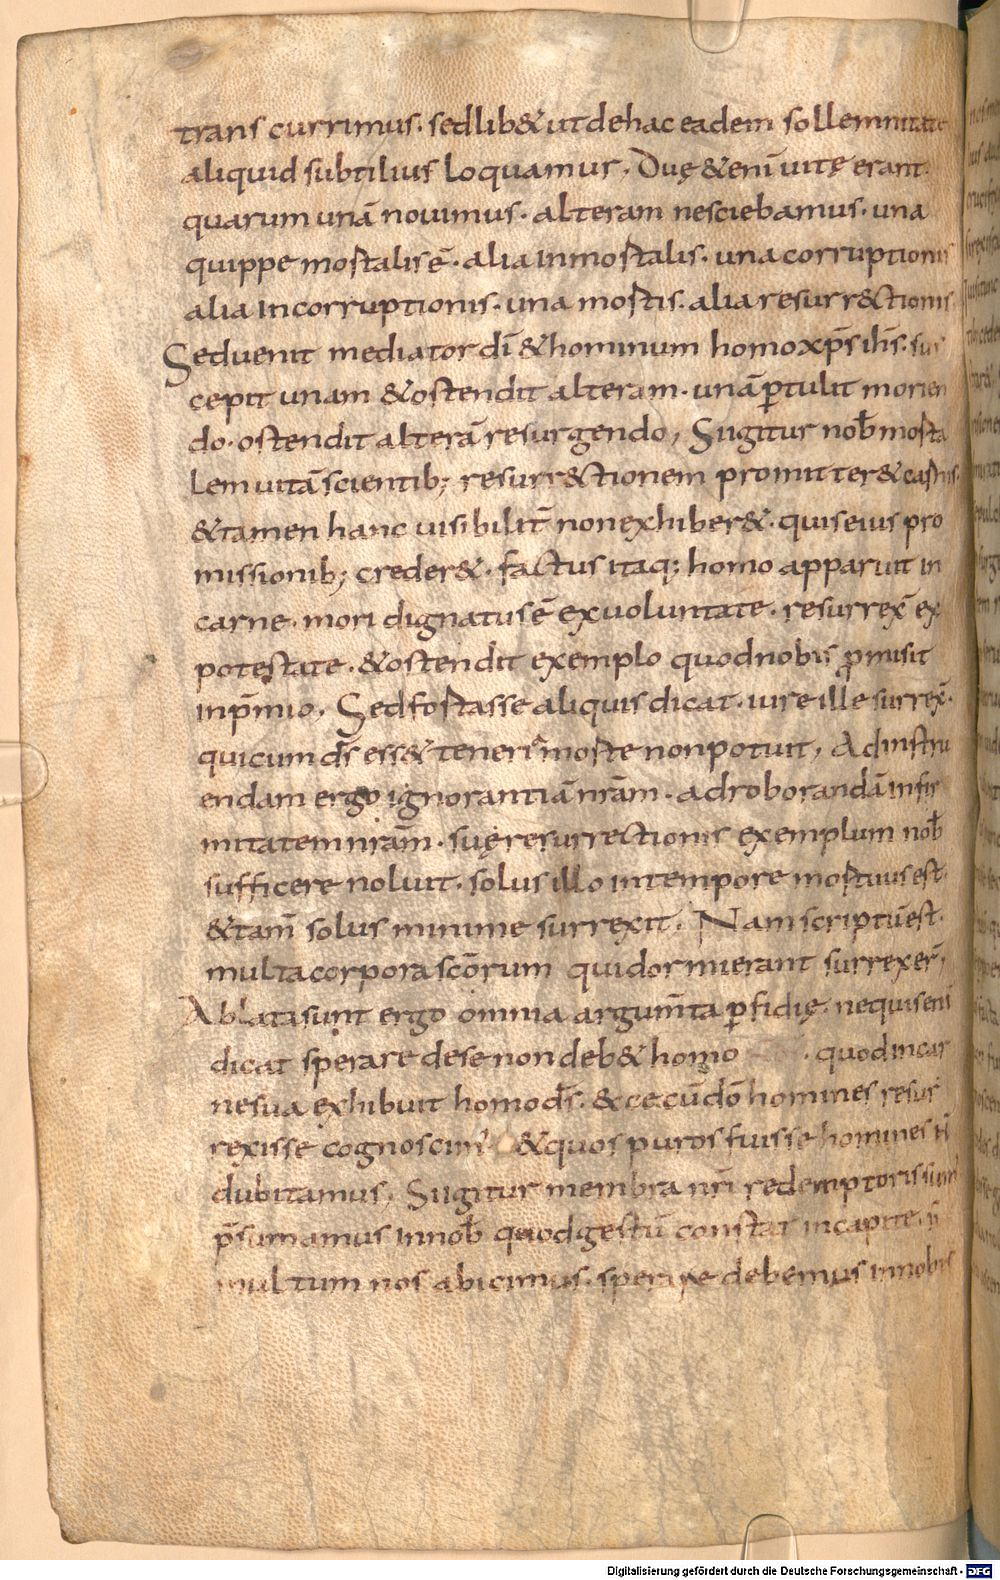 trans currimus. sedlib& utdehac eadem sollemnitate
aliquid subtilius loquamur. Duę &eni uitę erant.
quarum unā nouimus. alteram nesciebamus. una
quippe mortalis ē. alia inmortalis. una corruptionis
alia incorruptionis. una mortis. alia resurr&ctionis.
Seduenit mediator dī &hominum homo xp̄s ih̄s. sus
cepit unam &ostendit alteram. unā ꝑtulit morien
do. ostendit alterā resurgendo, Siigitur nob̄ morta
lem uitā scientib; resurr&ctionem promitter& carnis.
&tamen hanc uisibilit̄ non exhiber&. quis eius pro
missionib; creder&. factus itaq; homo apparuit in
carne. mori dignatus ē ex uoluntate. resurrex̄ ex
potestate. &ostendit exemplo quod nobis ꝓmisit
inp̄mio. Sed fortasse aliquis dicat. iure ille surrex̄.
qui cum d̄s ess& teneri a morte non potuit, Ad instru
endam ergo ignorantiā nr̄am. ad roborandā infir
mitatem nr̄am. suę resurrectionis exemplum nob̄
sufficere noluit. solus illo in tempore mortuus est.
&tam̄ solus minime surrexit. Nam scriptū est.
multa corpora sc̄orum qui dormierant surrexer̄,
Ablata sunt ergo omnia argum̄ta ꝑfidię. nequis enī
dicat sperare dese non deb& homo . quod in car
ne sua exhibuit homo d̄s. &cce cū dō homines resur
rexisse cognoscim' &quos puros fuisse homines n̄
dubitamus, Siigitur membra nr̄i redemptoris sum'
p̄sumamus in nob̄ quod gestū constat in capite. si
multum nos abicimus. sperare debemus in nobis